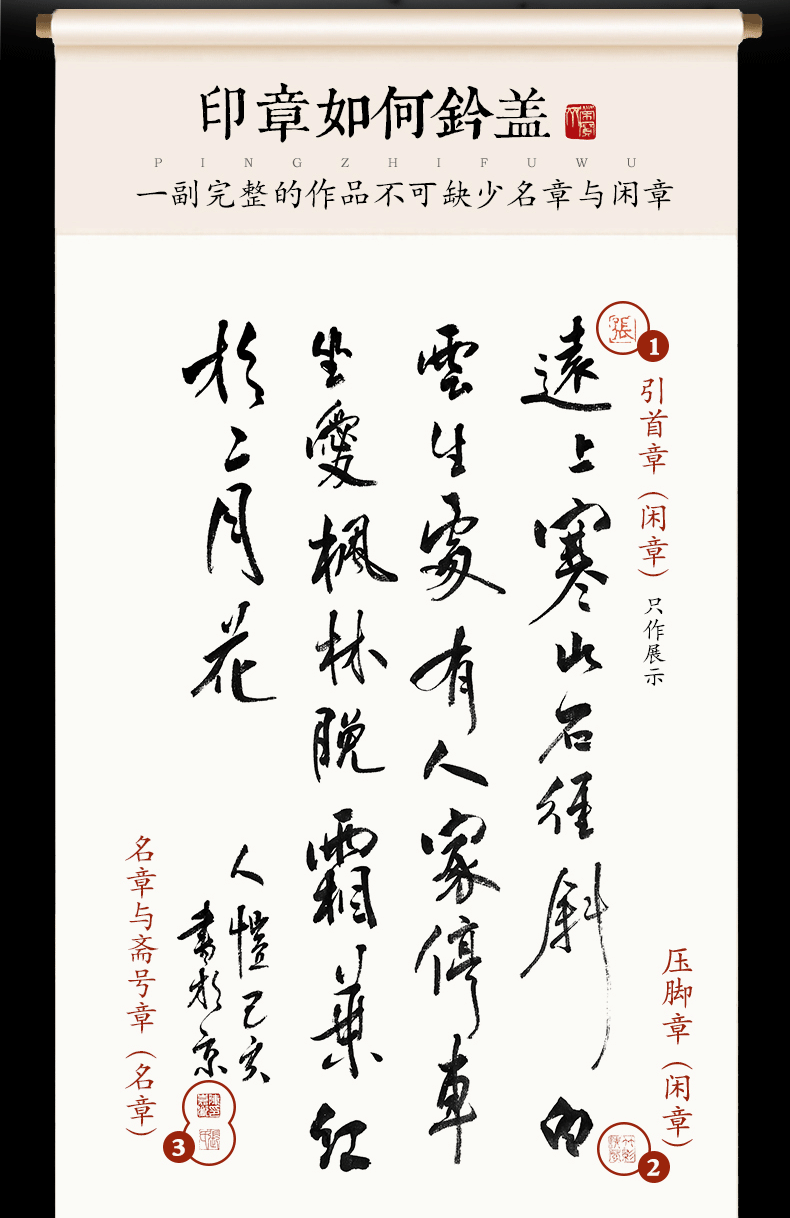 印章如何鈐盖
PINGZHIFUWU
一副完整的作品不可缺少名章与闲章
遠上寒山石徑斜白
雲生處有人家停車
坐愛楓林晚霜葉紅
於二月花
人愷己亥
書於京
張
1
引首章（闲章）
只作展示
压脚章（闲章）
2
名章与斋号章（名章）
3